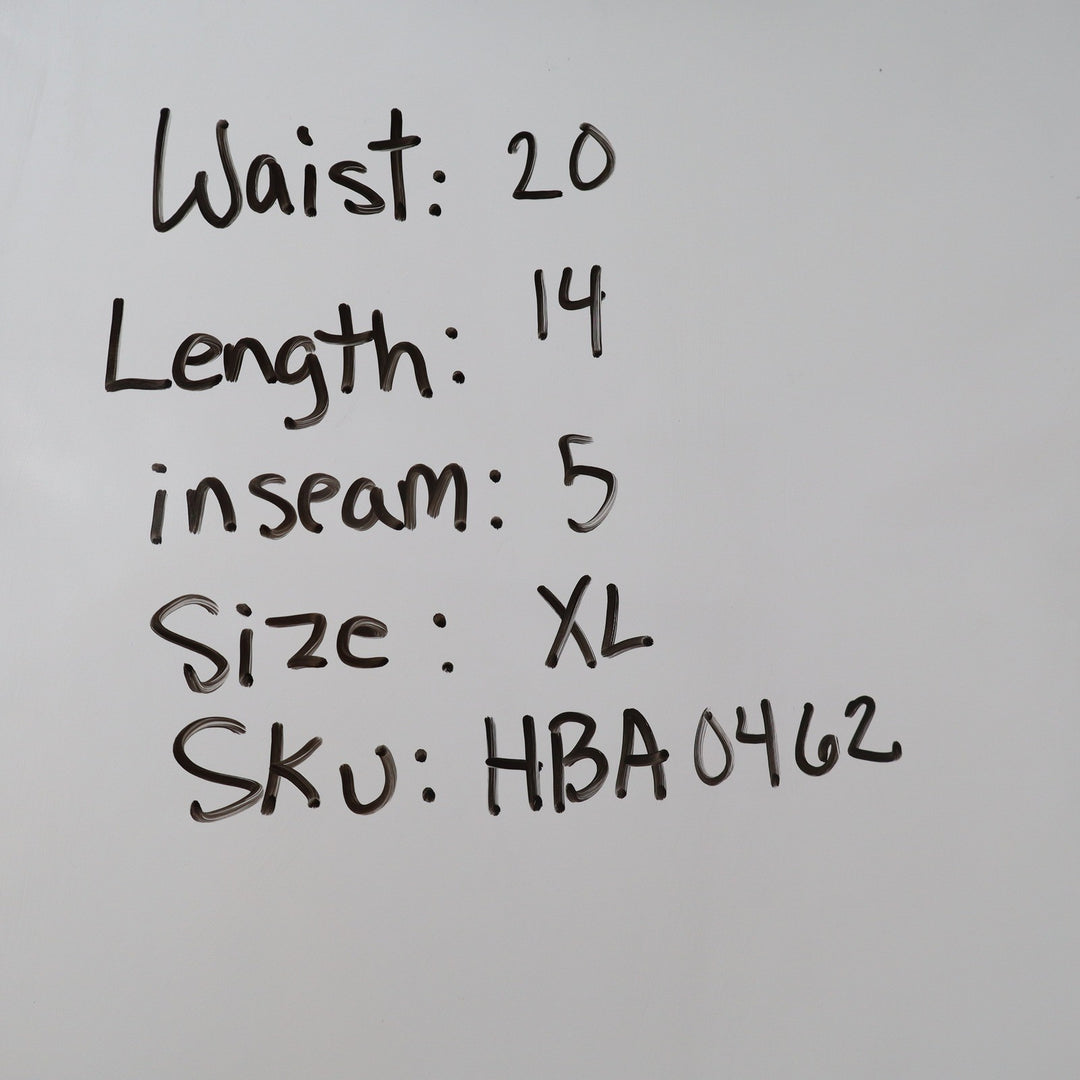 Waist: 20
Length: 14
inseam: 5
Size: XL
SKU: HBA0462